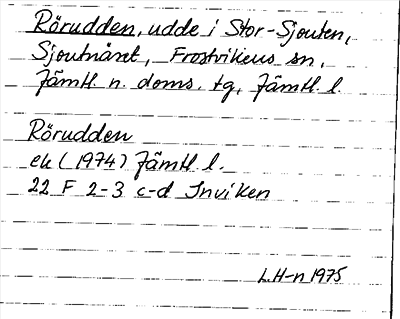 Rörudden, udde i Stor-Sjouten,
Sjoutnäset, Frostvikens sn,
Jämtl. n. doms. tg, Jämtl. l.
Rörudden
ek (1974) Jämtl l.
22 F 2-3 c-d Inviken
L.H-n 1975